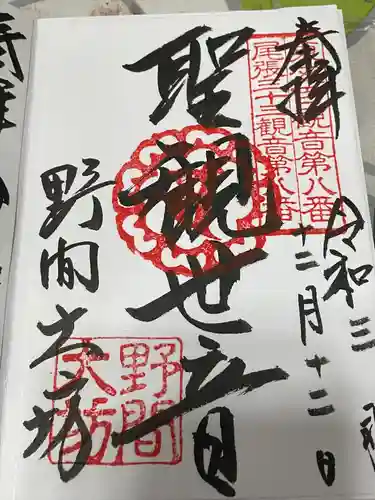 奉拝
令和三年
十二月十二日
尾張三十三観音第八番
観音第八番
聖観世音
野間大坊
野間
大坊